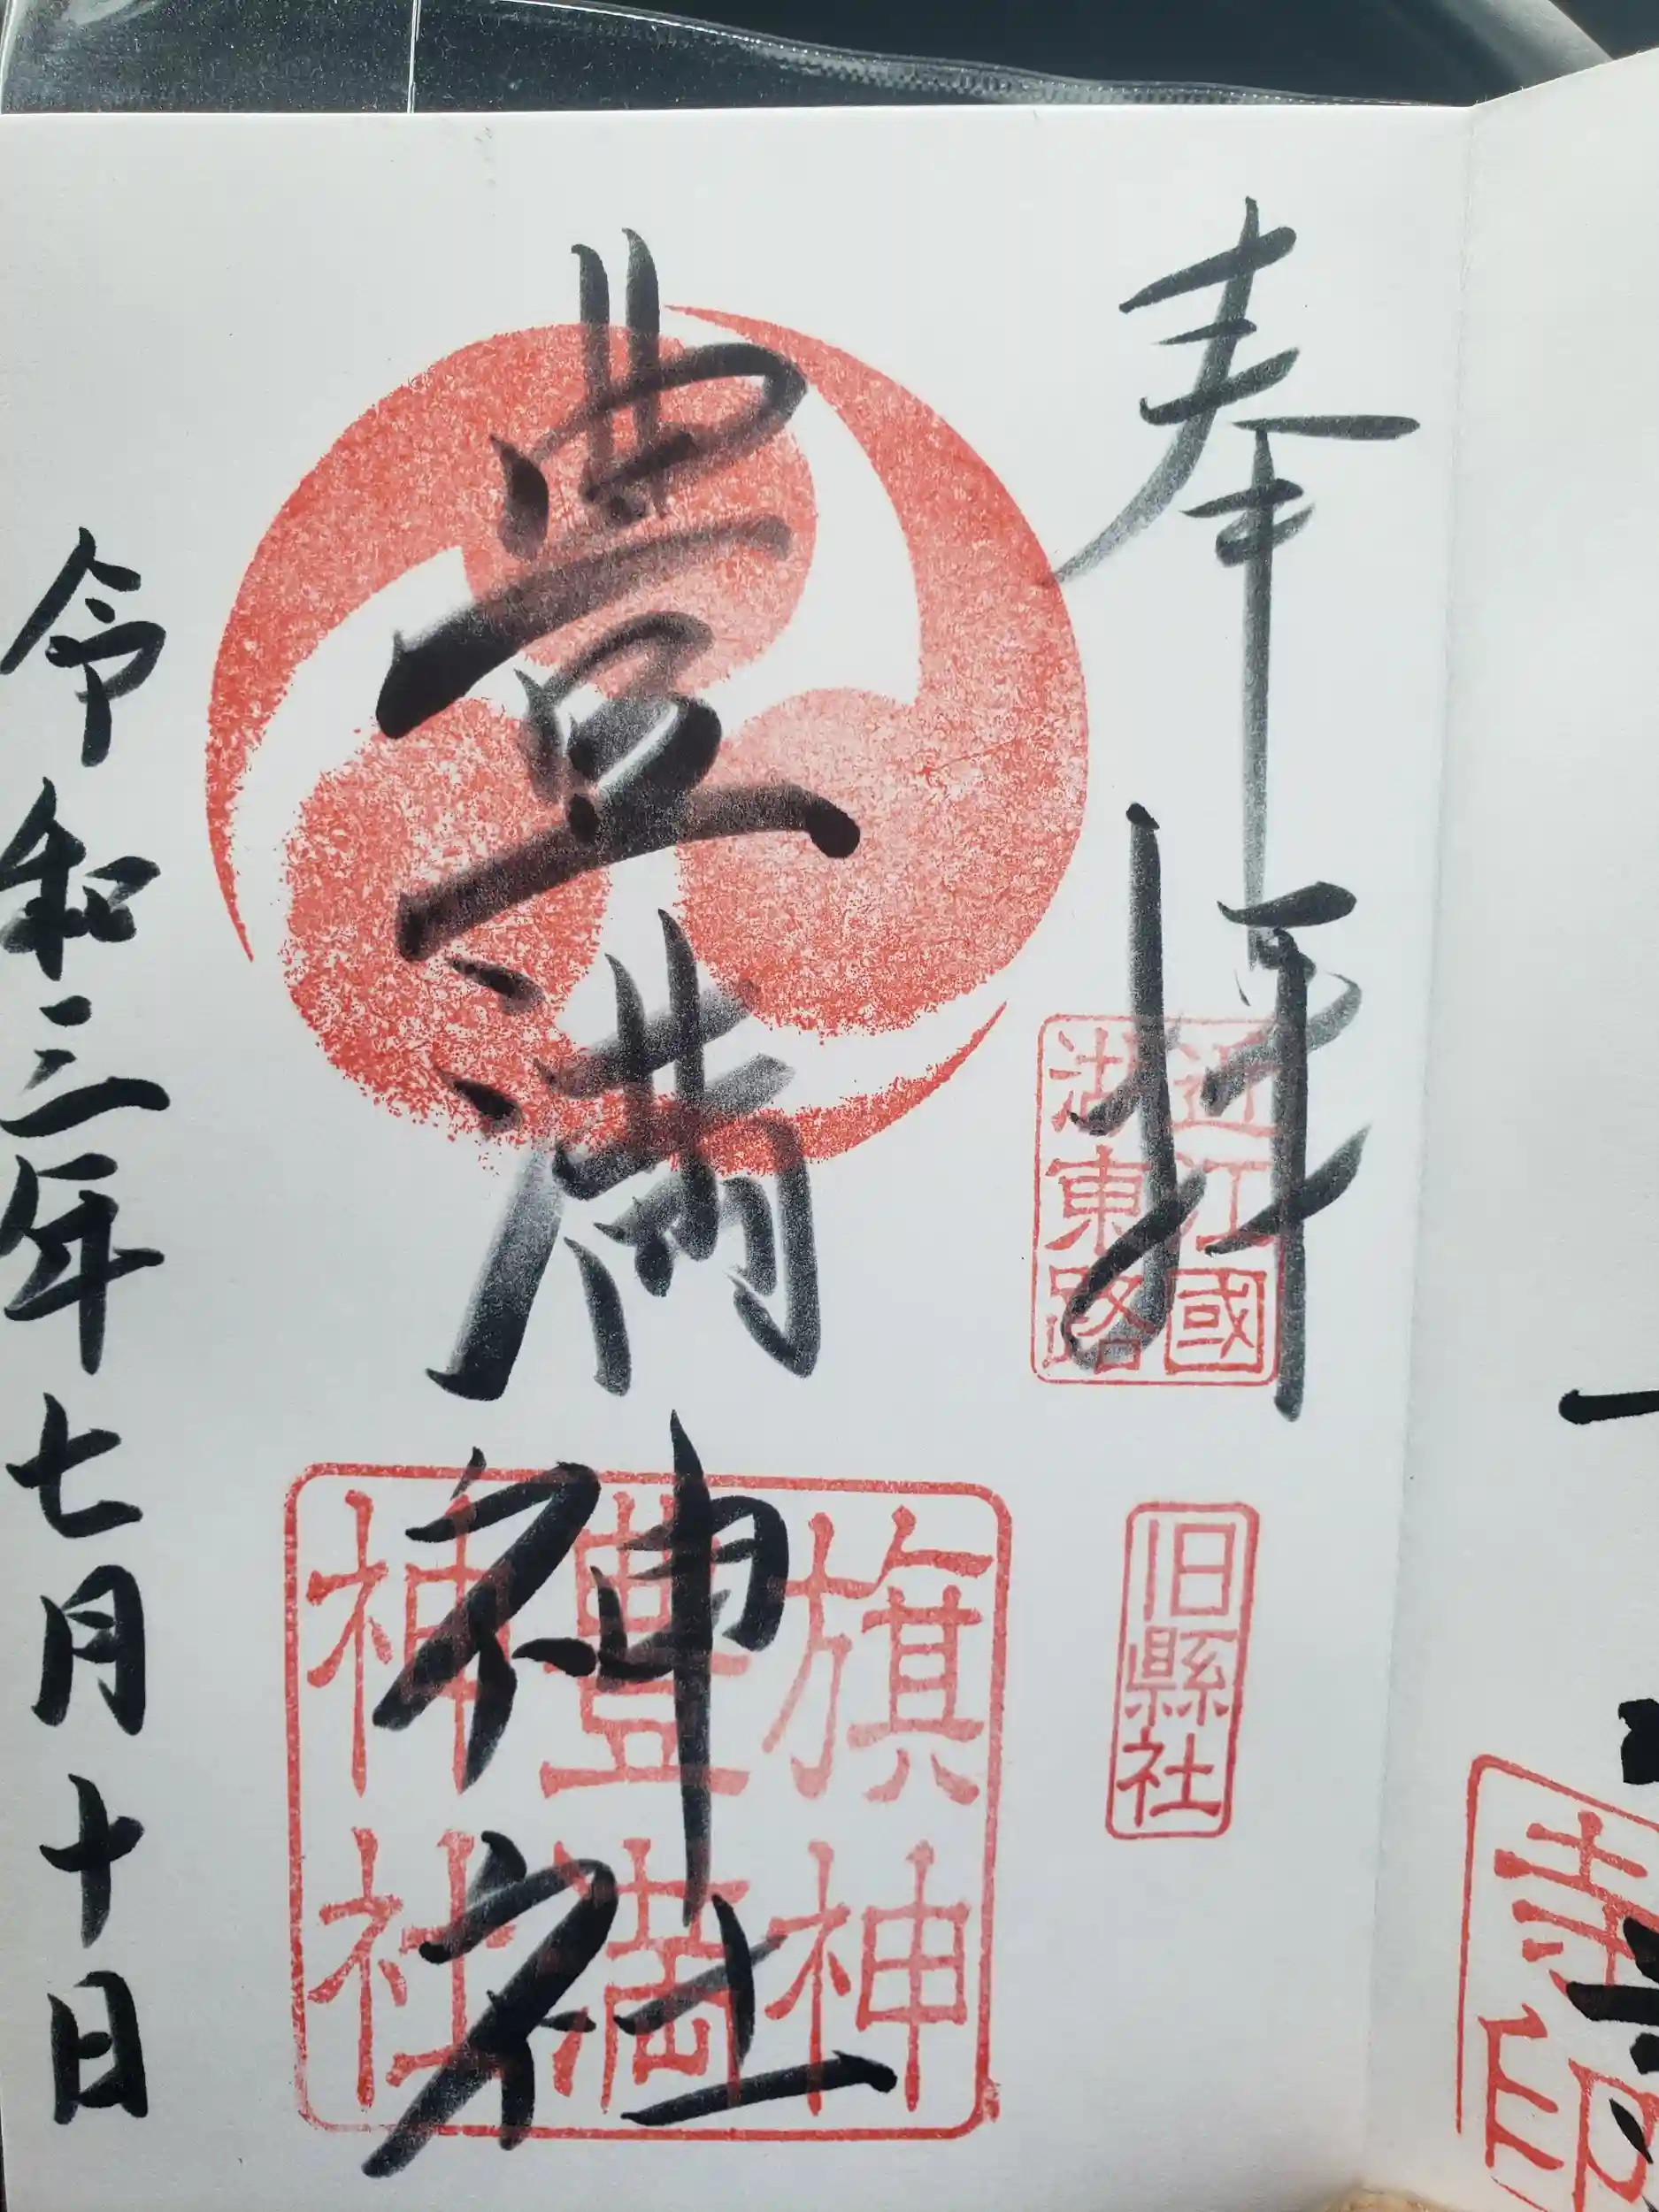 奉拝
近江國
湖東路
旧縣社
豊満神社
旗神
豊満
神社
令和三年七月十日
寺
印